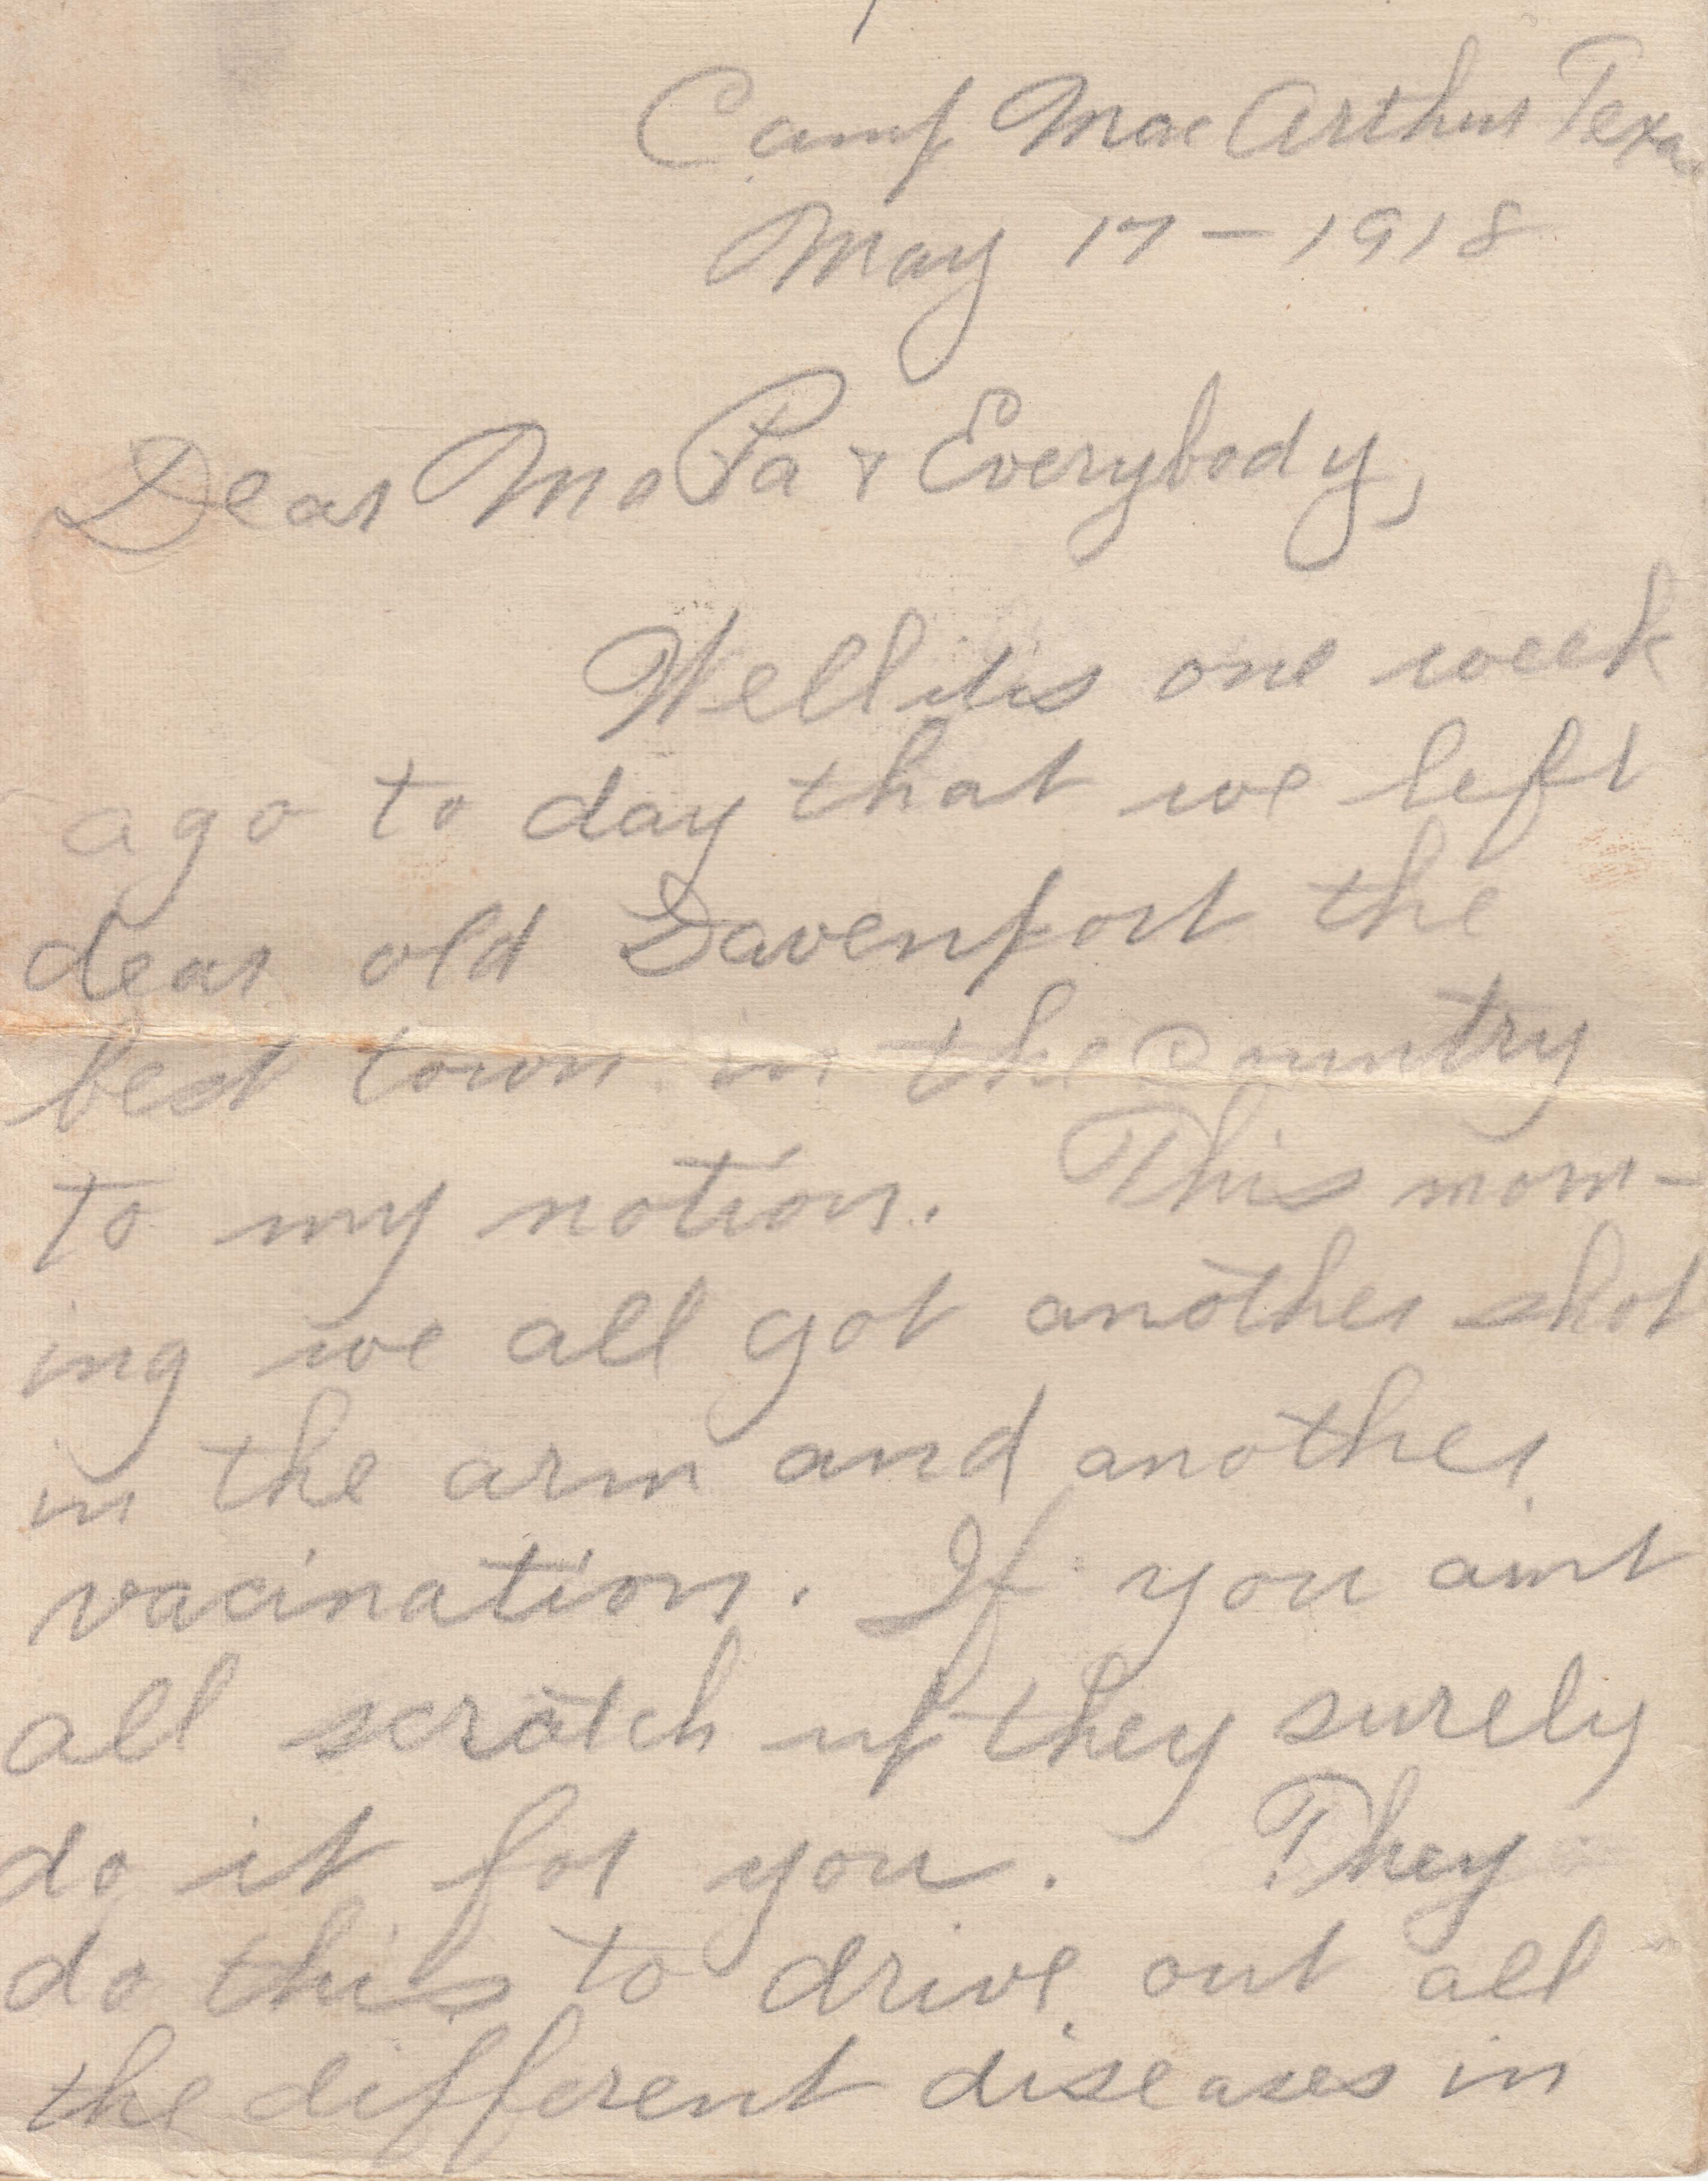 Camp MacArthur Texas
May 17 - 1918
Dear Ma Pa & Everybody,
Well its one week
ago to day that we left
dear old Davenport the
best town in the country
to my notion. This morn-
ing we all got another shot
in the arm and another
vacination. If you aint
all scratch up they surely
do it for you. They
do this to drive out all
the different diseases in